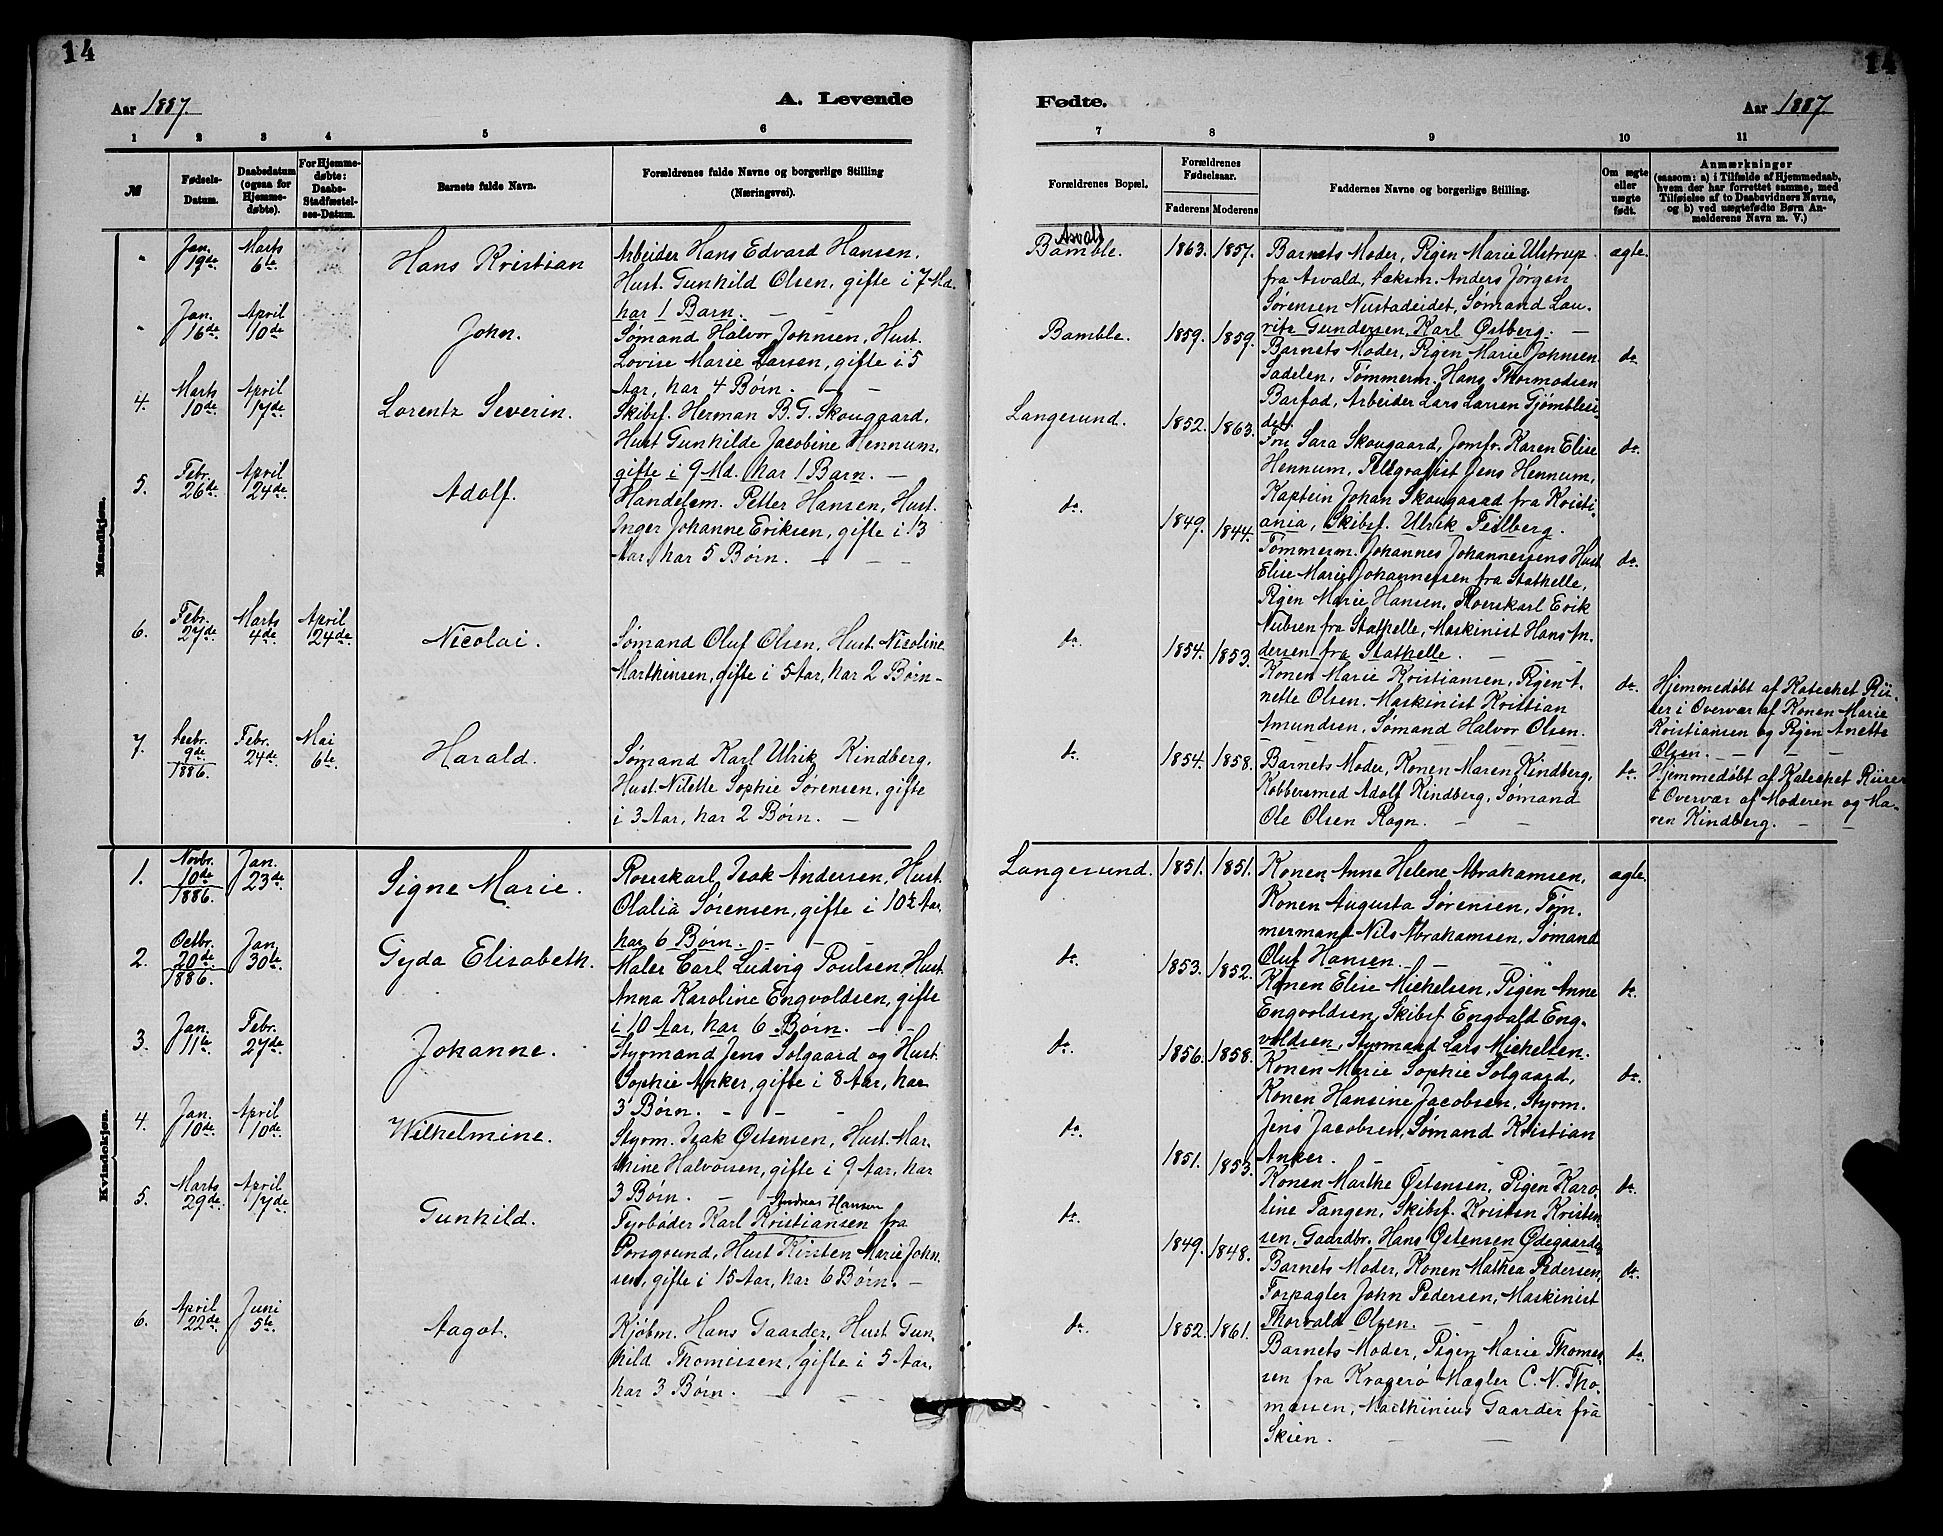 14
14
Aar 1887.
A. Levende
Fødte.
Aar 1887.
1 2 3 4 5 6 7 8 9 10 11
№
Fødsels-Datum.
Daabsdatum (ogsaa for Hjemmedøbte).
For Hjemmedøbte: Daabs-Stadfæstelses-Datum.
Barnets fulde Navn.
Forældrenes fulde Navne og borgerlige Stilling
(Næringsvei).
Forældrenes Bopæl.
Forældrenes Fødselsaar.
Faderens Moderens
Faddernes Navne og borgerlige Stilling.
Om ægte eller uægte født.
Anmærkninger
(saasom: a) i Tilfælde af Hjemmedaab,
hvem der har forrettet samme, med
Tilføielse af to Daabsvidners Navne,
og b) ved uægtefødte Børn Anmelderens Navn m. V.)
Mandkjøn.
" Jan. 19de Marts 6te Hans Kristian
Arbeider Hans Edvard Hansen,
Hust. Gunhild Olsen, gifte i 7 Md.
har 1 Barn.
Asvald
Bamble. 1863. 1857.
Barnets Moder, Pigen Marie Ulstrup
fra Asvald, Anders Jørgen
Sørensen Nustadeidet, Sømand Lauritz Gundersen, Karl Østberg.
ægte.
" Jan. 16de April 10de John.
Sømand Halvor Johnsen, Hust.
Lovise Marie Larsen, gifte i 5
Aar, har 4 Børn.
Bamble. 1859. 1859.
Barnets Moder, Pigen Marie Johnsen
Sadelen, Tømmerm. Hans Thormodsen
Barfod, Arbeider Lars Larsen
do.
4. Marts 10de April 17de Lorentz Severin.
Skibsf. Herman B. G. Skougaard,
Hust Gunhilde Jacobine Hennum,
gifte i 9 Md. har 1 Barn.
Langesund. 1852. 1863.
Fru Sara Skougaard, Jomfr. Karen Elise
Hennum, Telegrafist Jens Hennum,
Kaptein Johan Skougaard fra Kristiania, Skibsf. Ulrik Feilberg.
do.
5. Febr. 26de April 24de Adolf.
Handelsm. Petter Hansen, Hust.
Inger Johanne Eriksen, gifte i 13
Aar, har 5 Børn.
do. 1849. 1844.
Tømmerm. Johannes Johannessens Hust
Elise Marie Johannessen fra Stathelle,
Pigen Marie Hansen, Roerskarl Erik
Nubsen fra Stathelle, Maskinist Hans Andersen fra Stathelle.
do.
6. Febr. 27de Marts 4de April 24de Nicolai.
Sømand Oluf Olsen, Hust. Nicoline
Marthinsen, gifte i 5 Aar, har 2 Børn
do. 1854. 1853.
Konen Marie Kristiansen, Pigen Anette Olsen. Maskinist Kristian
Amundsen, Sømand Halvor Olsen.
do.
Hjemmedøbt af Katechet Riiser i Overvær af Konen Marie
Kristiansen og Pigen Anette
Olsen.
7. Decbr. 9de 1886. Febr. 24de Mai 6te Harald.
Sømand Karl Ulrik Kindberg,
Hust. Nilette Sophie Sørensen, gifte
i 3 Aar, har 2 Børn.
do. 1854. 1858.
Barnets Moder, Konen Maren Kindberg,
Kobbersmed Adolf Kindberg, Sømand
Ole Olsen Rogn.
do.
Hjemmedøbt af Katechet Riiser
i Overvær af Moderen og Maren Kindberg.
Kvindekjøn.
1. Novbr. 10de 1886. Jan. 23de Signe Marie.
Roerskarl, Isak Andersen, Hust.
Olalia Sørensen, gifte i 10½ Aar,
har 6 Børn.
Langesund. 1851. 1851.
Konen Anne Helene Abrahamsen,
Konen Augusta Sørensen, Tømmermand Nils Abrahamsen, Sømand
Oluf Hansen.
ægte.
2. Octbr. 20de 1886. Jan. 30te Gyda Elisabeth.
Maler Carl Ludvig Poulsen, Hust.
Anna Karoline Engvoldsen, gifte
i 10 Aar, har 6 Børn.
do. 1853. 1852.
Konen Elise Michelsen, Pigen Anne
Engvoldsen, Skibsf. Engvald Engvoldsen, Styrmand Lars Michelsen.
do.
3. Jan. 11te Febr. 27de Johanne.
Styrmand Jens Solgaard og Hust.
Sophie Anker, gifte i 8 Aar, har
3 Børn.
do. 1856. 1858.
Konen Marie Sophie Solgaard,
Konen Hansine Jacobsen, Styrm.
Jens Jacobsen, Sømand Kristian
Anker.
do.
4. Jan. 10de April 10de Wilhelmine.
Styrm. Isak Østensen, Hust. Marthine Halvorsen, gifte i 9 Aar, har
3 Børn.
do. 1851. 1853.
Konen Marthe Østensen, Pigen Karoline Tangen, Skibsf. Kristen Kristensen, Gaardbr. Hans Østensen Ødegaarden
do.
5. Marts 29de April 17de Gunhild.
Andreas Hansen
Fyrbøder Karl Kristiansen fra
Porsgrund, Hust Kirsten Marie Johnsen, gifte i 15 Aar, har 6 Børn.
do. 1849. 1848.
Barnets Moder, Konen Mathea Pedersen,
Forpagter John Pedersen, Maskinist
Thorvald Olsen.
do.
6. April 22de Juni 5te Aagot.
Kjøbm. Hans Gaarder, Hust Gunhild Thomessen, gifte i 5 Aar,
har 3 Børn.
do. 1852. 1861.
Barnets Moder, Pigen Marie Thomessen fra Kragerø Mægler C. N. Thomassen, Marthinius Gaarder fra
Skien.
do.